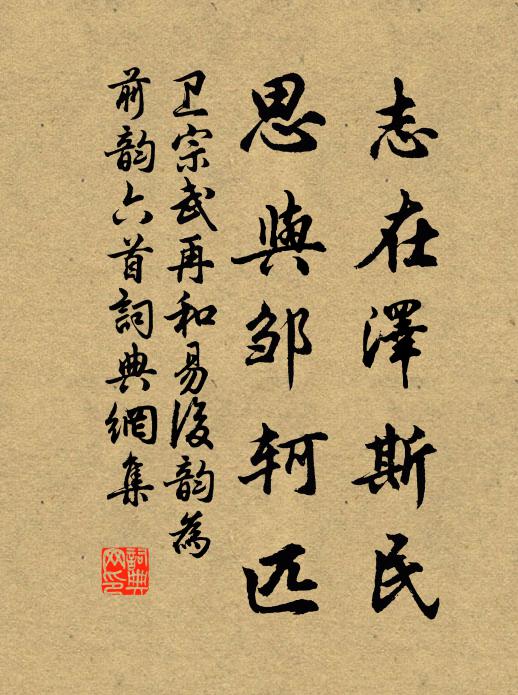 志在澤斯民
思與邹轲匹
卫宗武再和易後韵為
前韵六首詞典網集
詞典网印